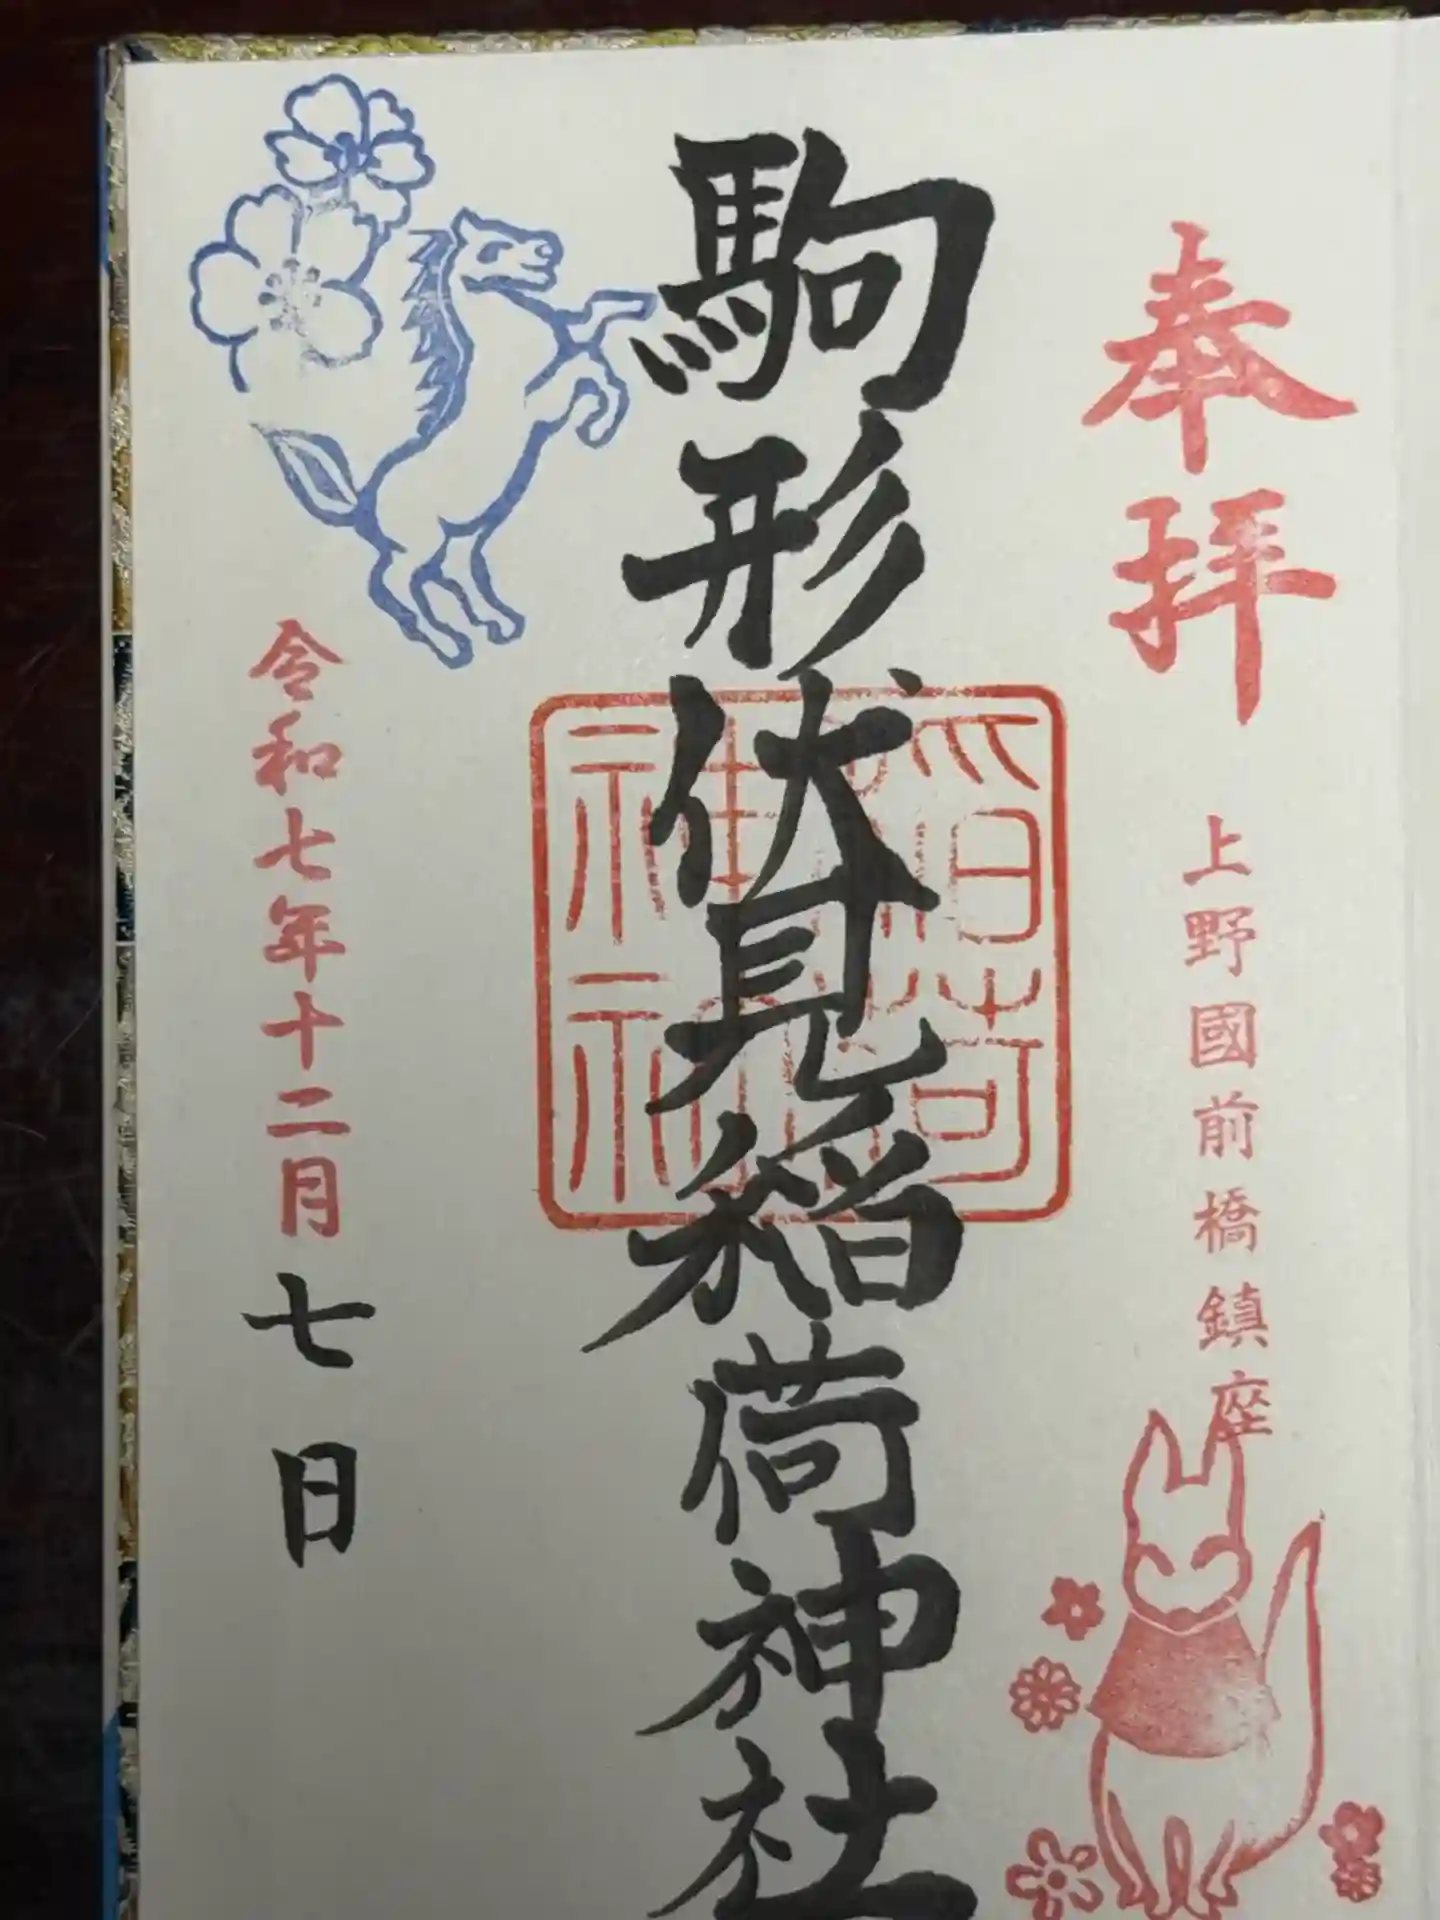 奉拝
上野國前橋鎮座
駒形伏見稲荷神社
令和七年十二月七日